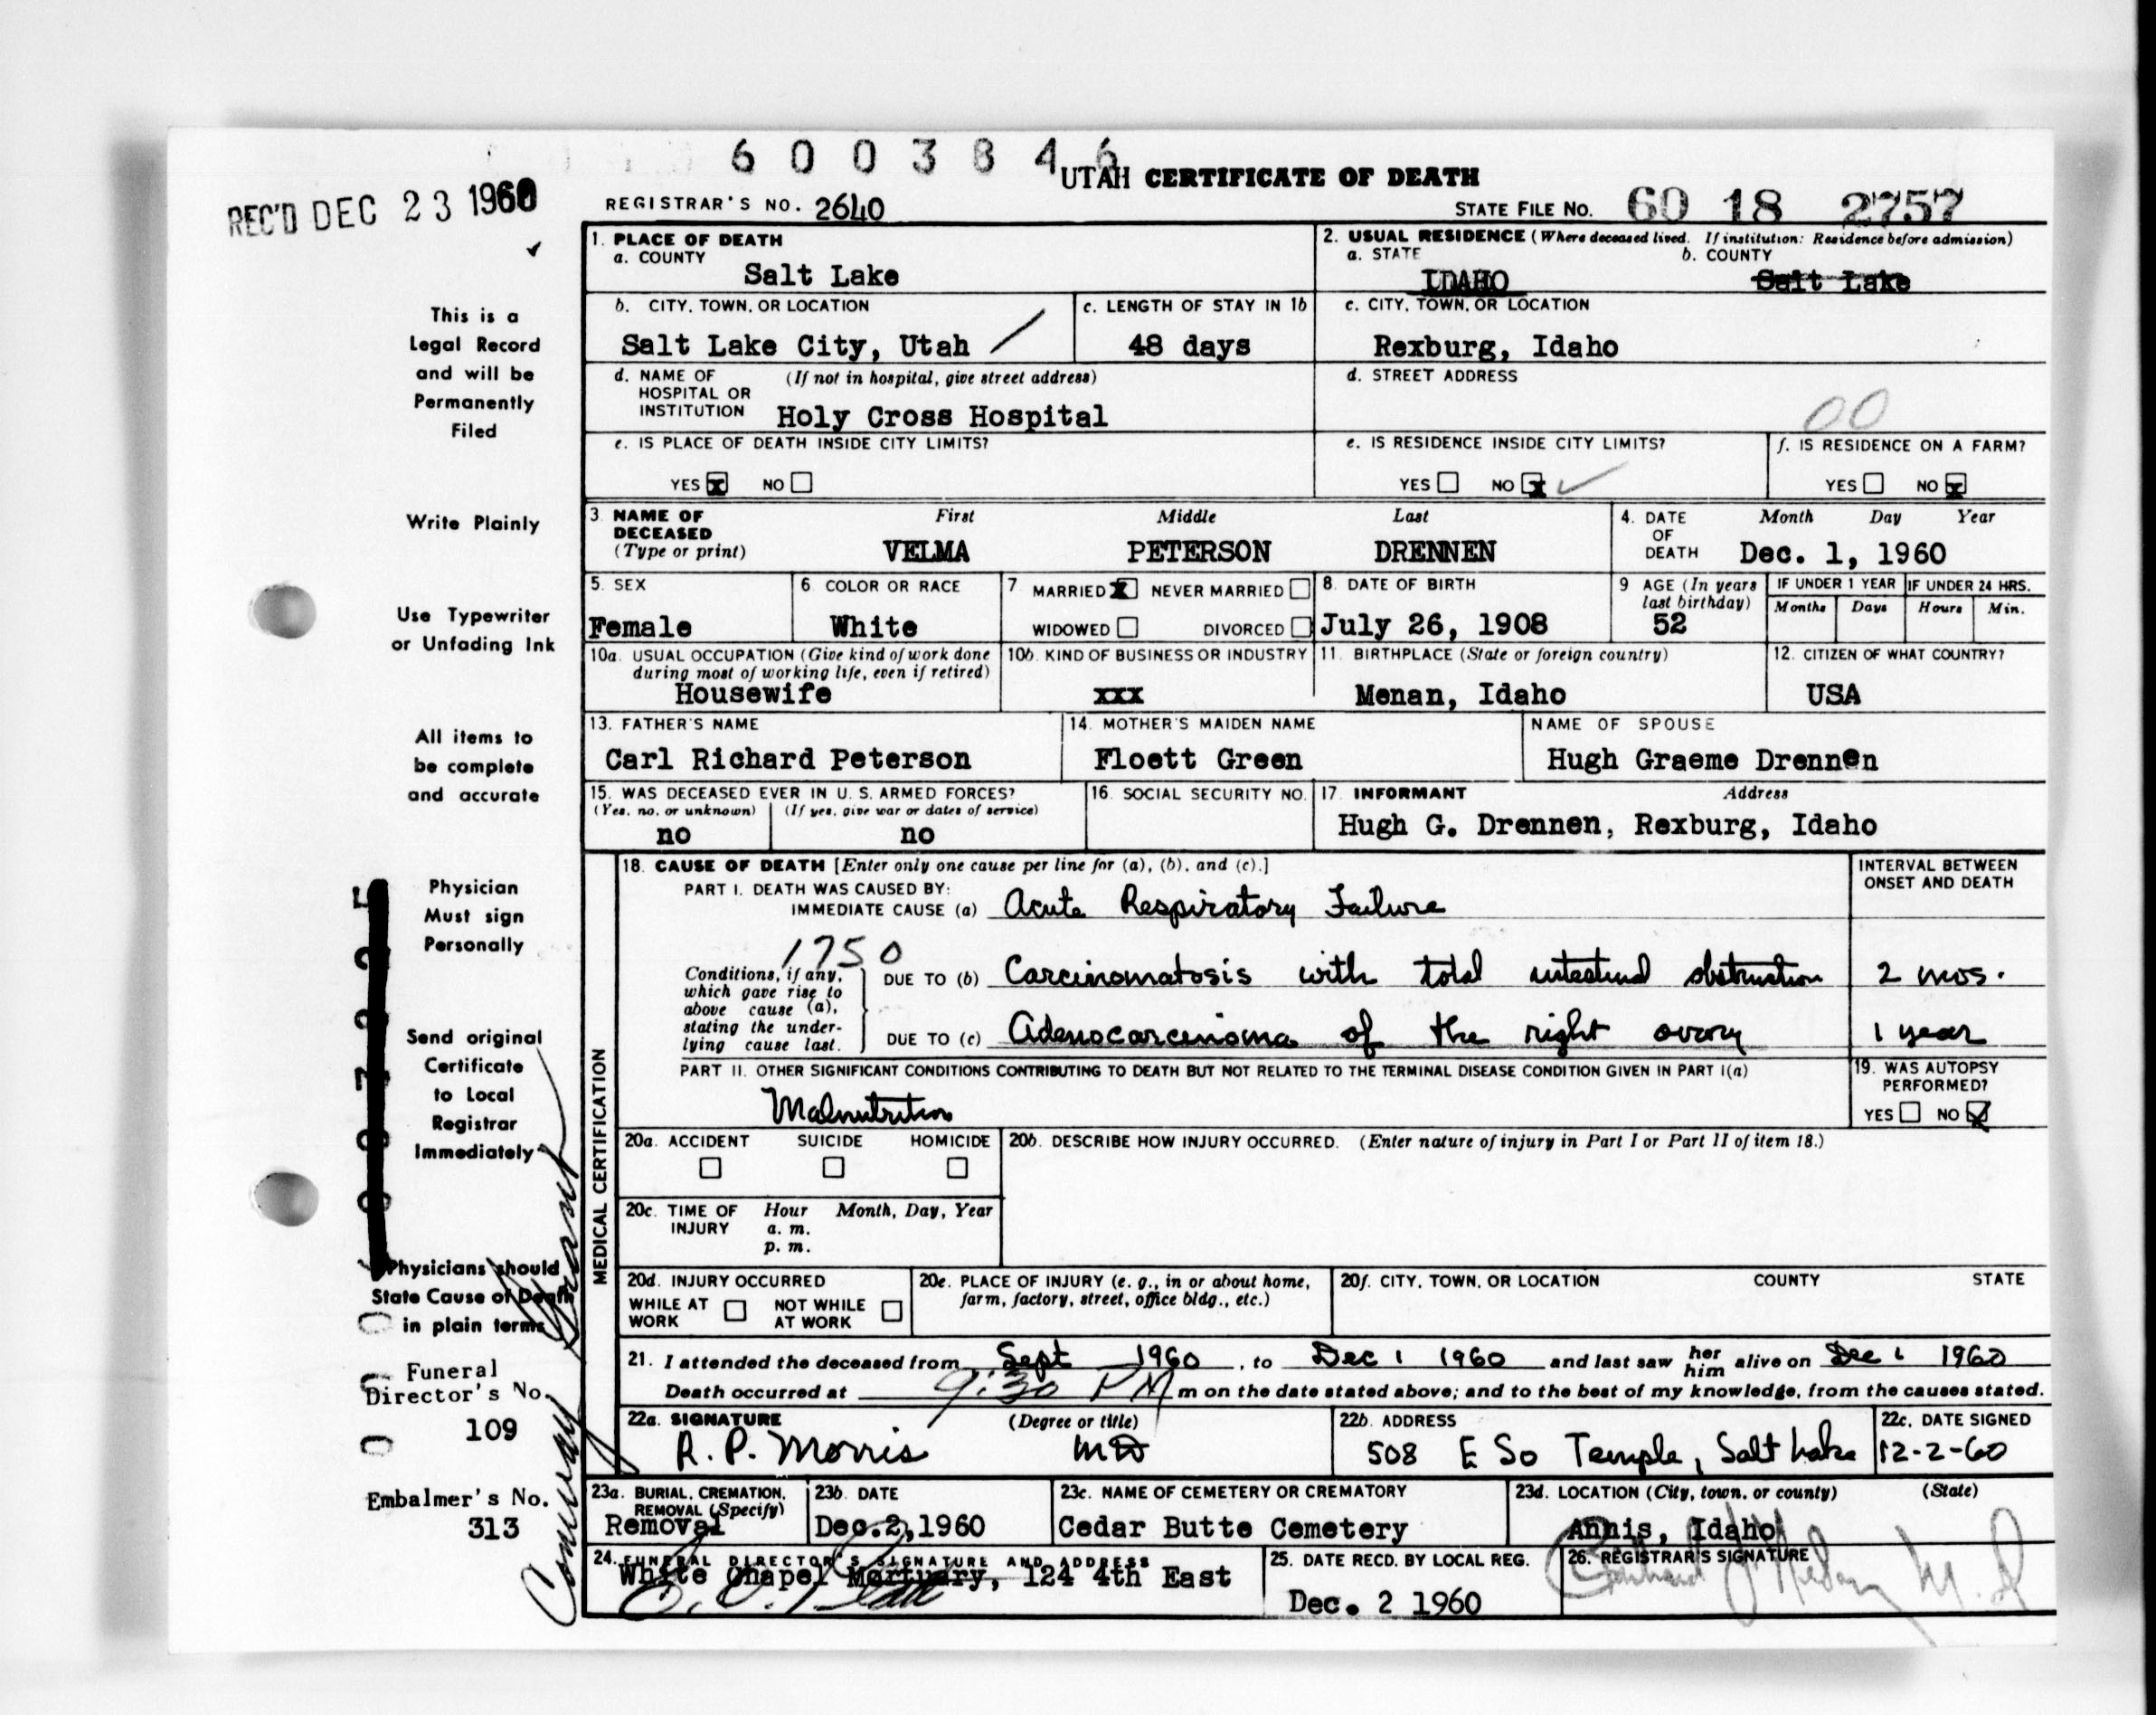 6 0 0 3 8 4 6
UTAH CERTIFICATE OF DEATH
REC'D DEC 23 1960
REGISTRAR'S NO. 2640
STATE FILE NO. 60 18 2757
This is a
Legal Record
and will be
Permanently
Filed
Write Plainly
Use Typewriter
or Unfading Ink
All items to
be complete
and accurate
Physician
Must sign
Personally
Send original
Certificate
to Local
Registrar
Immediately
Physicians should
State Cause of Death
in plain terms
Funeral
Director's No.
109
Embalmer's No.
313
1. PLACE OF DEATH
a. COUNTY
Salt Lake
2. USUAL RESIDENCE (Where deceased lived. If institution: Residence before admission)
a. STATE b. COUNTY
IDAHO Salt Lake
b. CITY, TOWN, OR LOCATION
Salt Lake City, Utah
c. LENGTH OF STAY IN 1b
48 days
c. CITY, TOWN, OR LOCATION
Rexburg, Idaho
d. NAME OF (If not in hospital, give street address)
HOSPITAL OR
INSTITUTION Holy Cross Hospital
d. STREET ADDRESS
00
e. IS PLACE OF DEATH INSIDE CITY LIMITS?
YES x NO
e. IS RESIDENCE INSIDE CITY LIMITS?
YES NO x
f. IS RESIDENCE ON A FARM?
YES NO x
3. NAME OF First Middle Last
DECEASED
(Type or print) VELMA PETERSON DRENNEN
4. DATE Month Day Year
OF
DEATH Dec. 1, 1960
5. SEX
Female
6. COLOR OR RACE
White
7 MARRIED x NEVER MARRIED
WIDOWED DIVORCED
8. DATE OF BIRTH
July 26, 1908
9 AGE (In years
last birthday)
52
IF UNDER 1 YEAR IF UNDER 24 HRS.
Months Days Hours Min.
10a. USUAL OCCUPATION (Give kind of work done
during most of working life, even if retired)
Housewife
10b. KIND OF BUSINESS OR INDUSTRY
xxx
11. BIRTHPLACE (State or foreign country)
Menan, Idaho
12. CITIZEN OF WHAT COUNTRY?
USA
13. FATHER'S NAME
Carl Richard Peterson
14. MOTHER'S MAIDEN NAME
Floett Green
NAME OF SPOUSE
Hugh Graeme Drennen
15. WAS DECEASED EVER IN U. S. ARMED FORCES?
(Yes, no, or unknown) (If yes, give war or dates of service)
no no
16. SOCIAL SECURITY NO.
17. INFORMANT Address
Hugh G. Drennen, Rexburg, Idaho
MEDICAL CERTIFICATION
18. CAUSE OF DEATH [Enter only one cause per line for (a), (b), and (c).]
PART I. DEATH WAS CAUSED BY:
IMMEDIATE CAUSE (a) Acute Respiratory Failure
INTERVAL BETWEEN
ONSET AND DEATH
1750
Conditions, if any,
which gave rise to
above cause (a),
stating the under-
lying cause last.
DUE TO (b) Carcinomatosis with total intestinal obstruction 2 mos.
DUE TO (c) Adenocarcinoma of the right ovary 1 year
PART II. OTHER SIGNIFICANT CONDITIONS CONTRIBUTING TO DEATH BUT NOT RELATED TO THE TERMINAL DISEASE CONDITION GIVEN IN PART I(a)
Malnutrition
19. WAS AUTOPSY
PERFORMED?
YES NO x
20a. ACCIDENT SUICIDE HOMICIDE
20b. DESCRIBE HOW INJURY OCCURRED. (Enter nature of injury in Part I or Part II of item 18.)
20c. TIME OF Hour Month, Day, Year
INJURY a. m.
p. m.
20d. INJURY OCCURRED
WHILE AT NOT WHILE
WORK AT WORK
20e. PLACE OF INJURY (e. g., in or about home,
farm, factory, street, office bldg., etc.)
20f. CITY, TOWN, OR LOCATION COUNTY STATE
21. I attended the deceased from Sept 1960, to Dec 1 1960 and last saw her him alive on Dec 1 1960
Death occurred at 9:30 PM m on the date stated above; and to the best of my knowledge, from the causes stated.
22a. SIGNATURE (Degree or title)
R. P. Morris MD
22b. ADDRESS
508 E So Temple, Salt Lake
22c. DATE SIGNED
12-2-60
23a. BURIAL, CREMATION,
REMOVAL (Specify)
Removal
23b. DATE
Dec. 2, 1960
23c. NAME OF CEMETERY OR CREMATORY
Cedar Butte Cemetery
23d. LOCATION (City, town, or county) (State)
Annis, Idaho
24. FUNERAL DIRECTOR'S SIGNATURE AND ADDRESS
White Chapel Mortuary, 124 4th East
25. DATE RECD. BY LOCAL REG.
Dec. 2 1960
26. REGISTRAR'S SIGNATURE